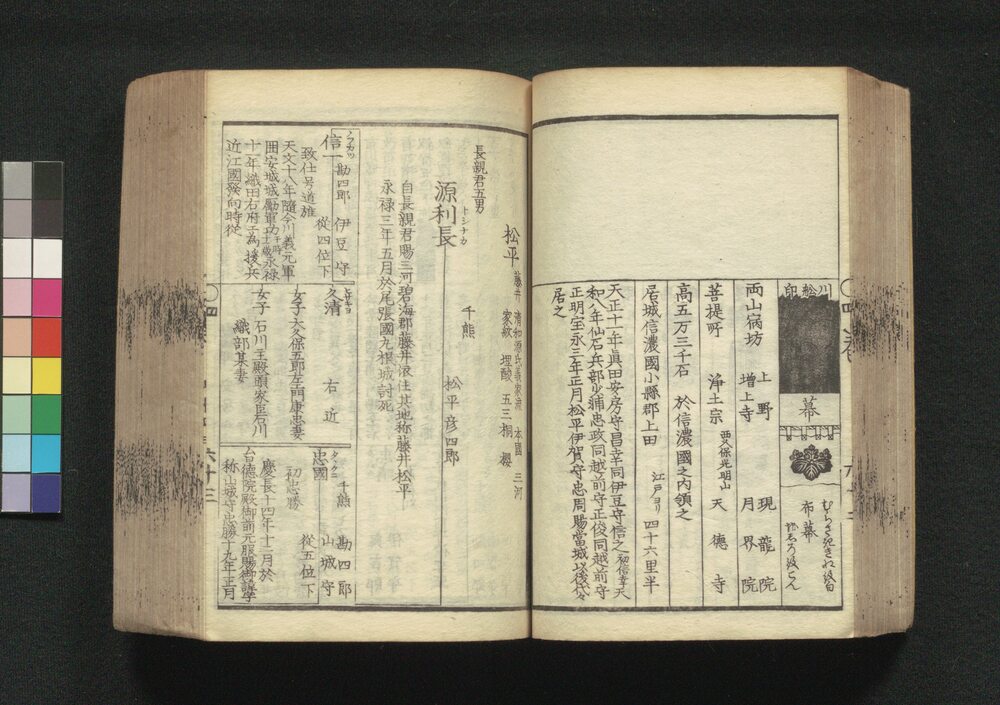 川舩印
幕
むらさききぬ紋白
布幕
両山宿坊
上野 現龍院
増上寺 月界院
菩提所 浄土宗 西久保光明山 天徳寺
高五万三千石 於信濃國之内領之
居城信濃國小縣郡上田 江戸ヨリ四十六里半
天正十一年眞田安房守昌幸同伊豆守信之初信幸天
和八年仙石兵部少浦忠政同越前守正俊同越前守
正明宝永三年正月松平伊賀守忠周賜當城以後代々
居之
松平 藤井 清和源氏義家流 本國 三河
家紋 埋酸 五三桐 櫻
長親君五男
千熊
源利長 トシナカ 松平彦四郎
自長親君賜三河碧海郡藤井依住其地称藤井松平
永禄三年五月於尾張國丸根城討死
信一 ノフカツ 勘四郎 伊豆守
致仕号道雄 從四位下
天文十八年隨今川義元軍
囲安城城勵軍功
永禄
十一年織田右府工為援兵
近江國発向時從
久清 右近
女子 大久保五郎左門康忠妻
女子 石川主殿頭家臣石川
織部某妻
忠國 タヽクニ 千熊 勘四郎
山城守
初忠勝 從五位下
慶長十四年十二月於
台徳院殿御前元服賜御諱字
称山城守忠勝十九年正月
六十三